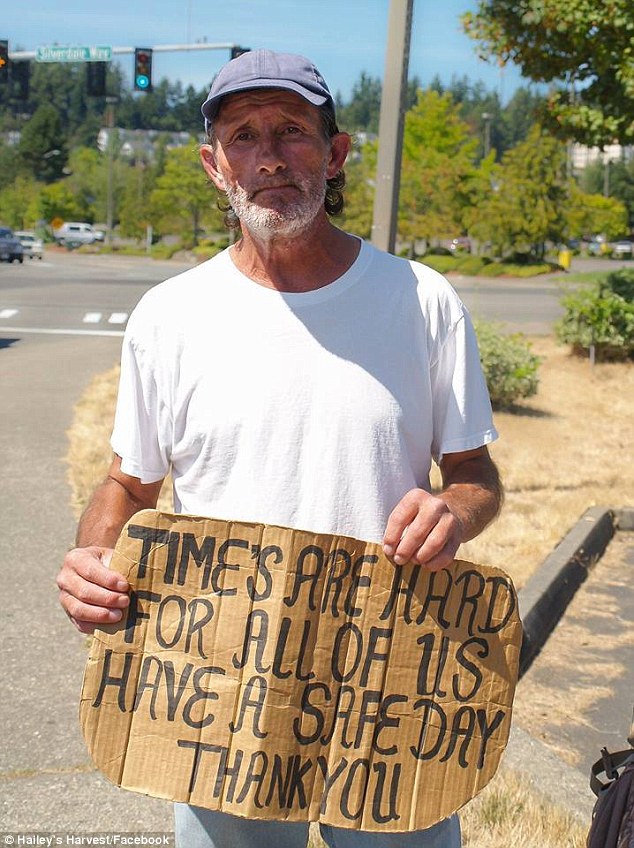 Silverdale Way
TIME'S ARE HARD
FOR ALL OF US
HAVE A SAFE DAY
THANK YOU
© Hailey's Harvest/Facebook